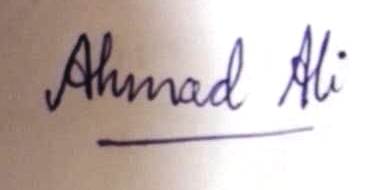 Ahmad Ali